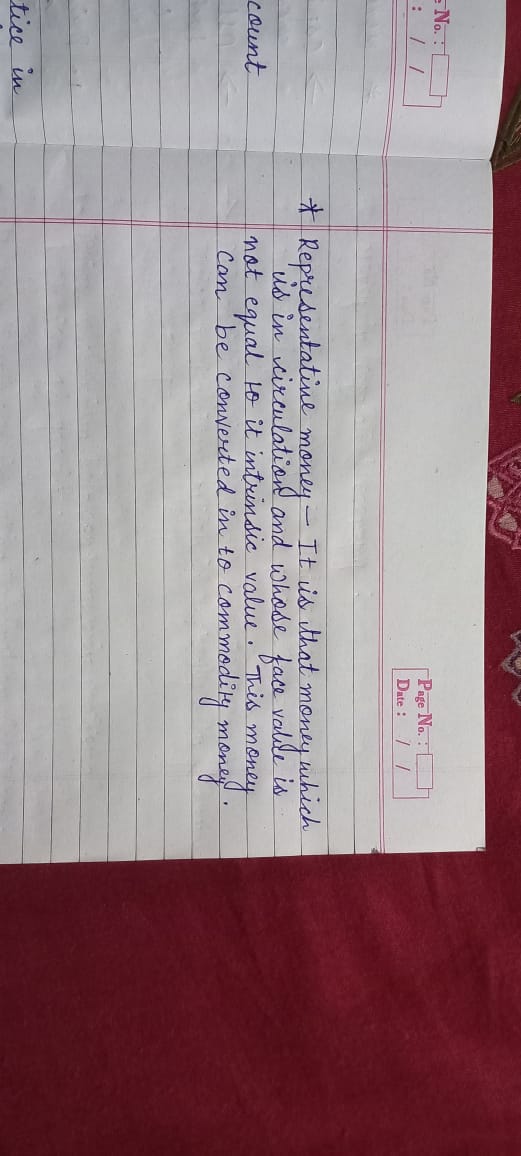 No. :
: / /
Page No. :
Date : / /
* Representative money - It is that money which
is in circulation and whose face value is
count
not equal to it intrinsic value. This money
can be converted in to commodity money.
tice in